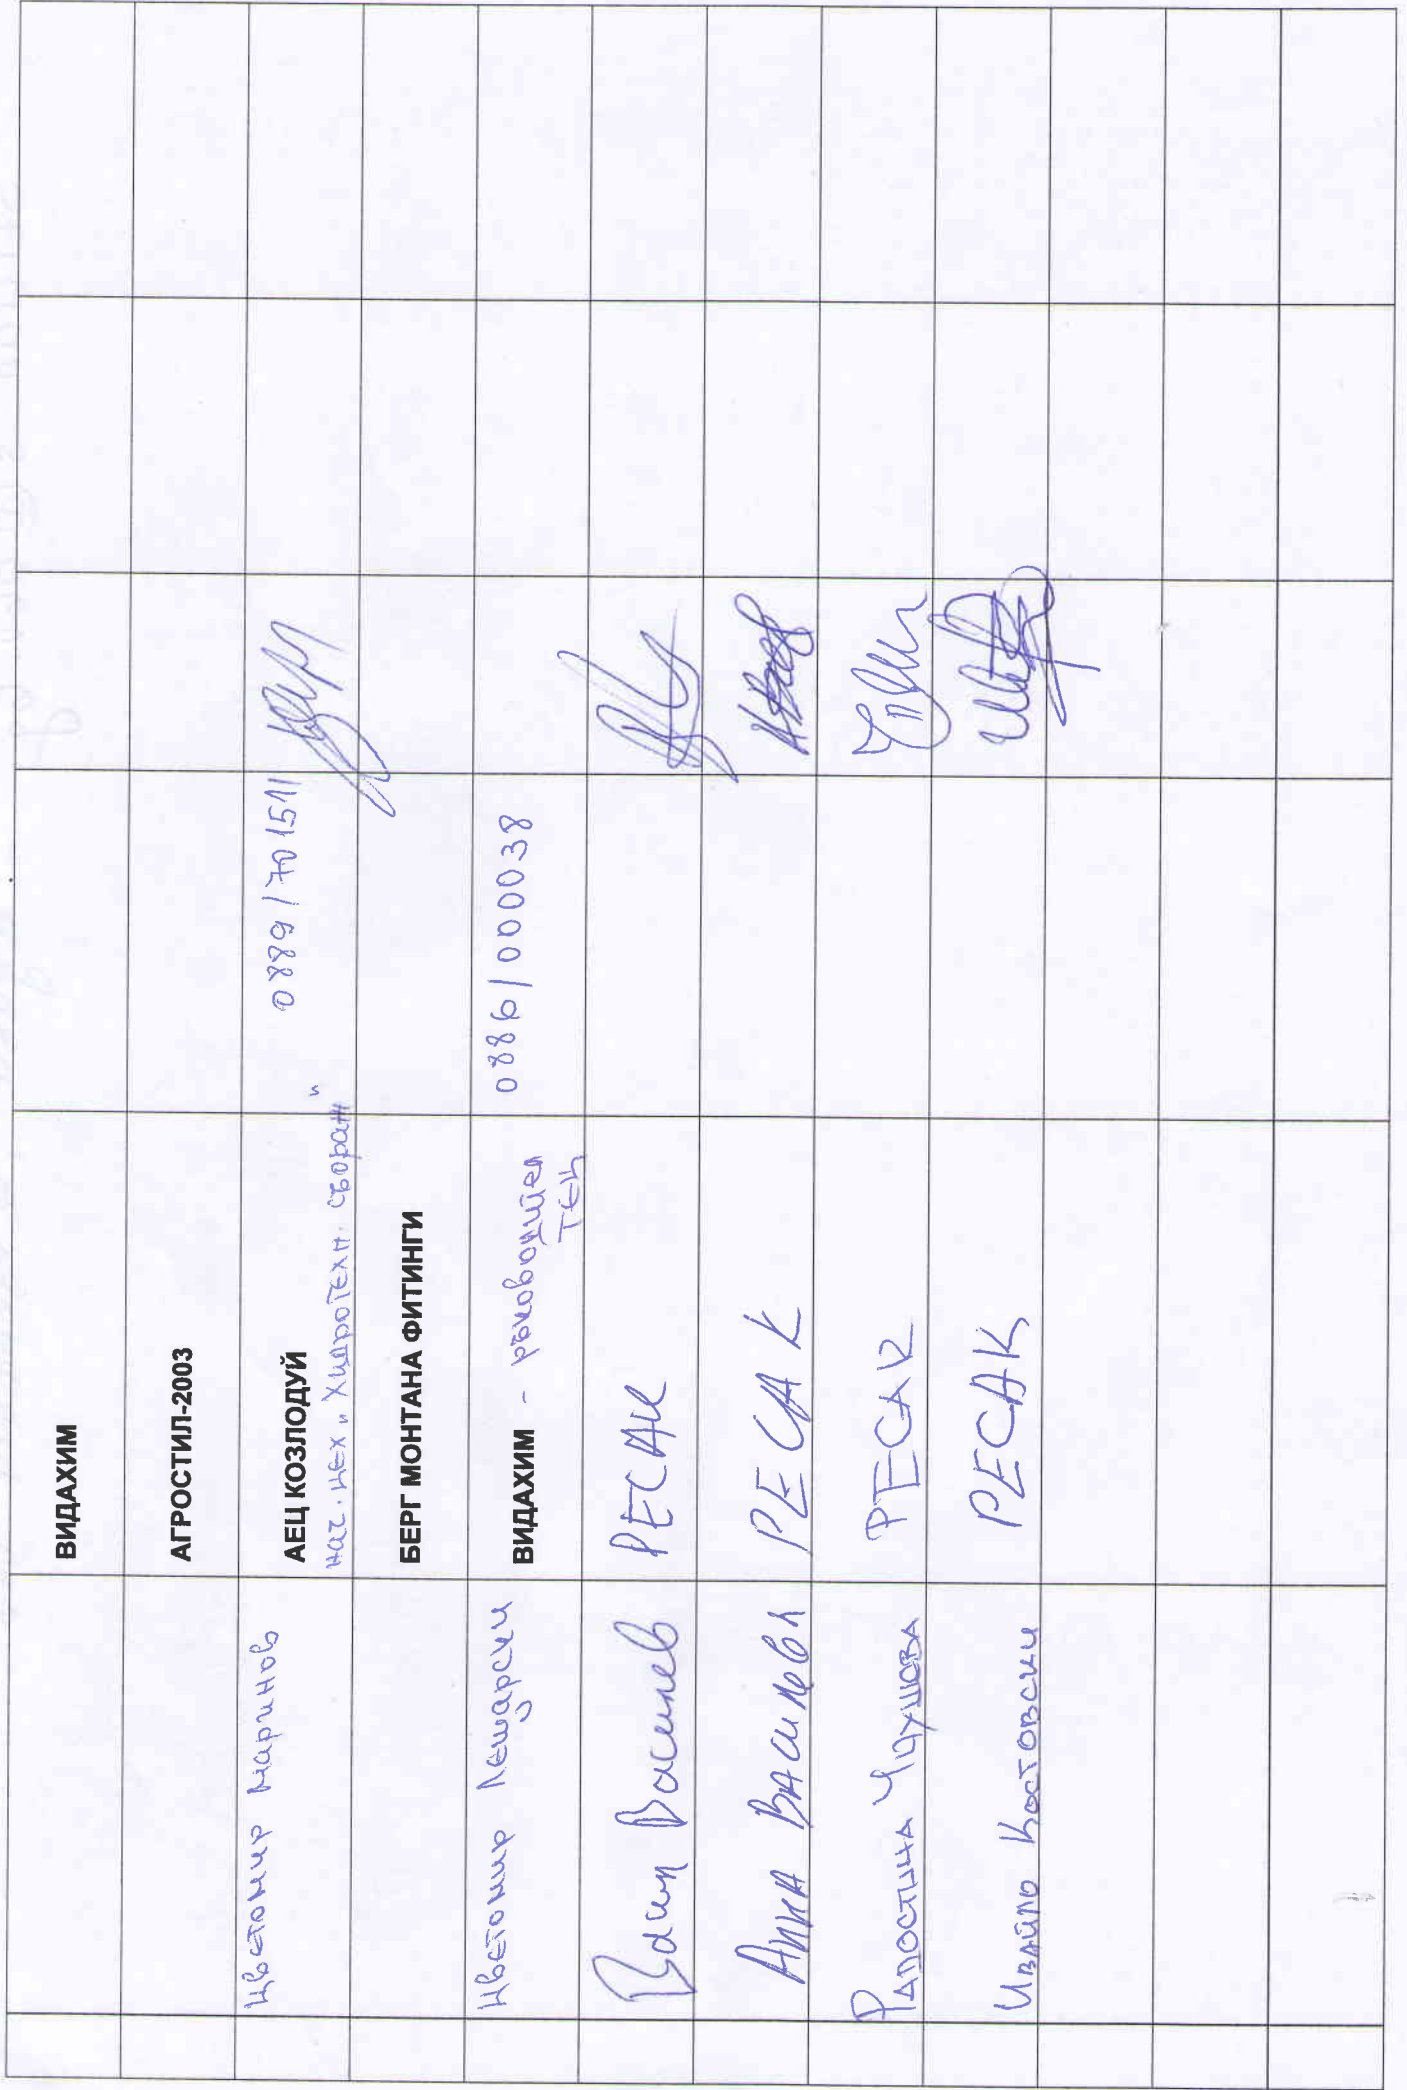 ВИДАХИМ
АГРОСТИЛ-2003
Цветомир Маринов АЕЦ КОЗЛОДУЙ 0889/701511
нач. цех „Хидротехн. съораж“
БЕРГ МОНТАНА ФИТИНГИ
Цветомир Лешарски ВИДАХИМ - ръководител 0886/000038
ТЕЦ
Васил Василев РЕСАК
Анна Василева РЕСАК
Радостина РЕСАК
Ивайло Костовски РЕСАК